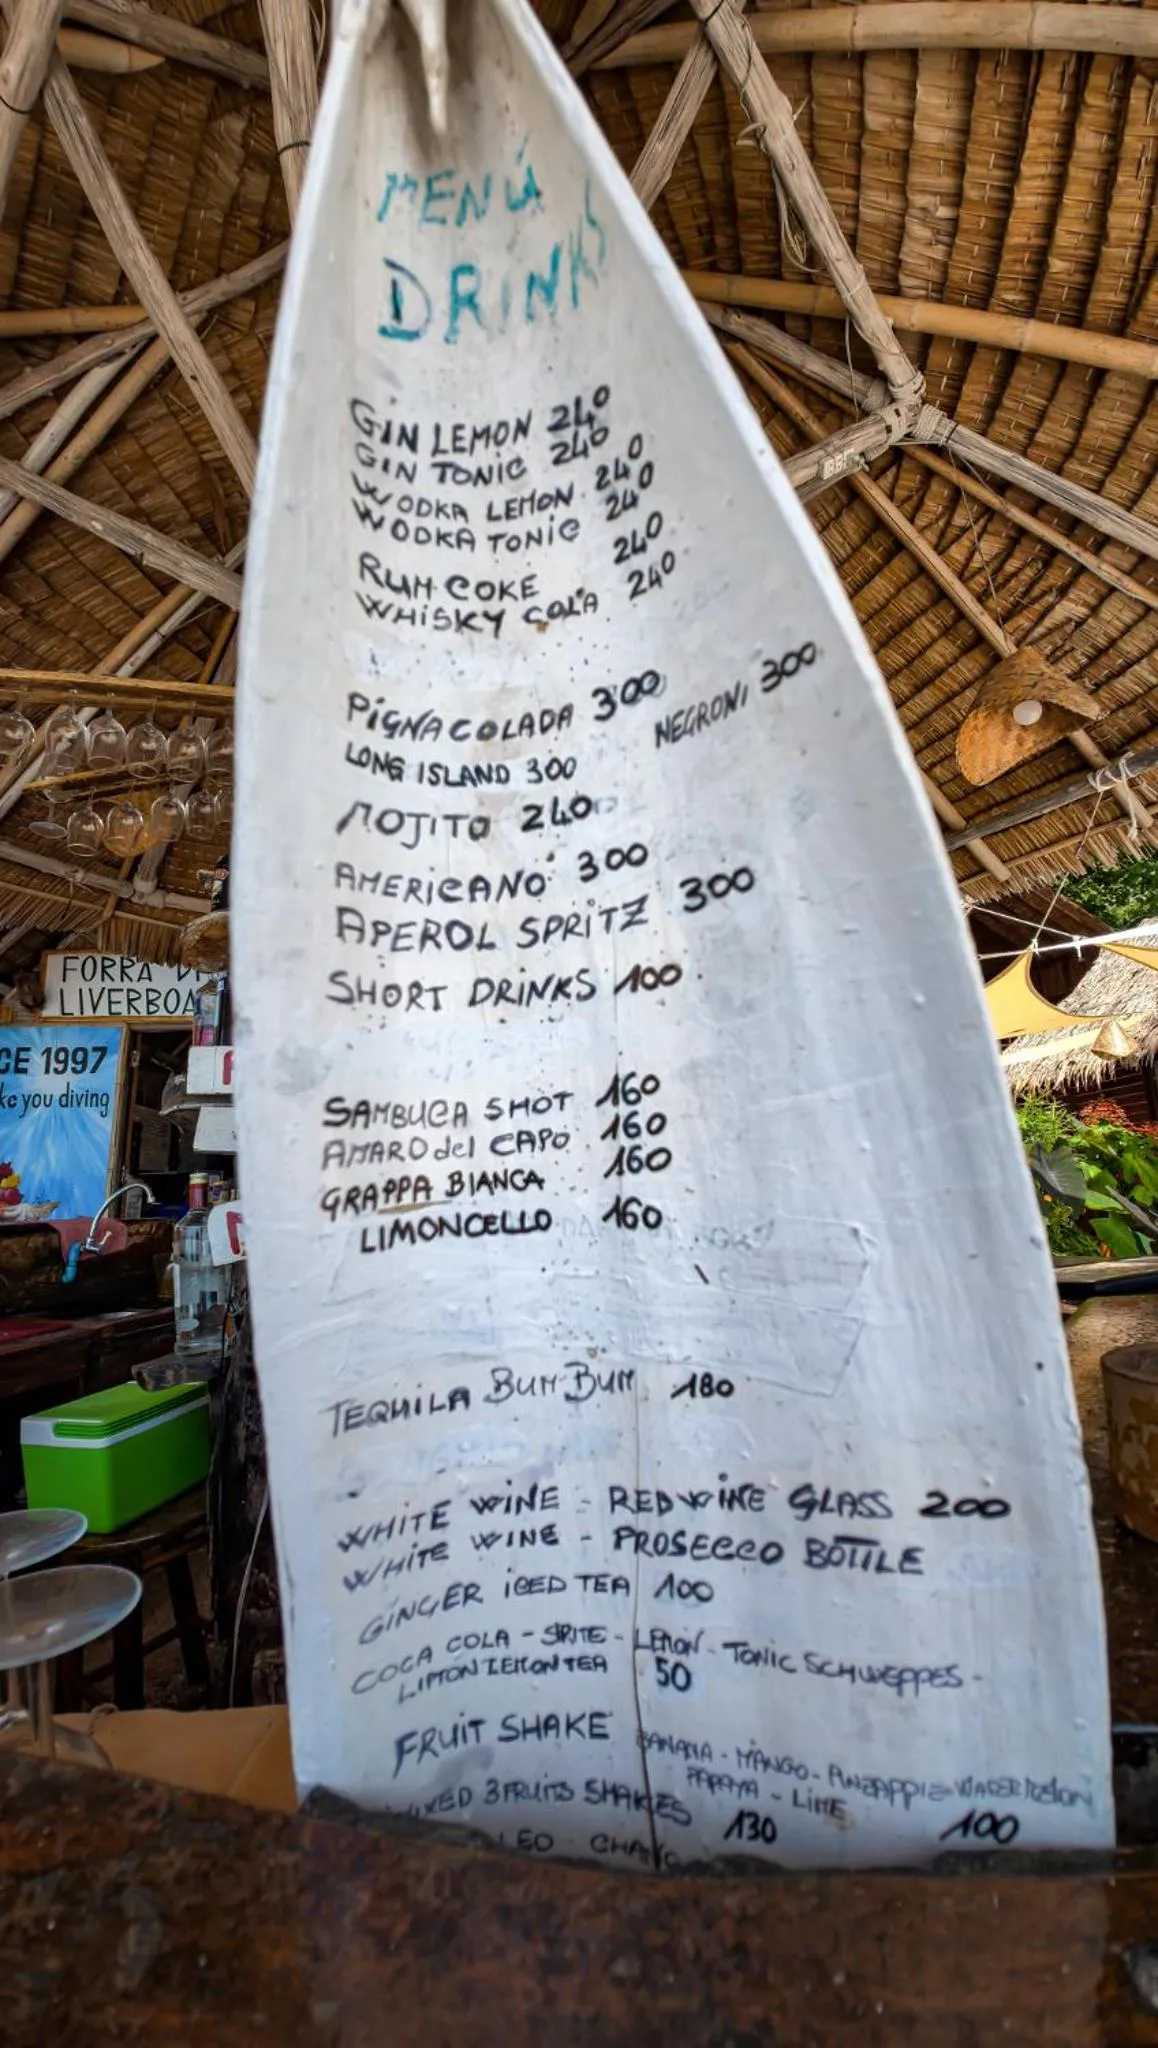 MENÚ
DRINKS
GIN LEMON 240
GIN TONIC 240
WODKA LEMON 240
WODKA TONIC 240
RUM COKE 240
WHISKY COLA 240
PIGNA COLADA 300
NEGRONI 300
LONG ISLAND 300
MOJITO 240
AMERICANO 300
APEROL SPRITZ 300
SHORT DRINKS 100
SAMBUCA SHOT 160
AMARO del CAPO 160
GRAPPA BIANCA 160
LIMONCELLO 160
TEQUILA BUM BUM 180
WHITE WINE - RED WINE GLASS 200
WHITE WINE - PROSECCO BOTTLE
GINGER ICED TEA 100
COCA COLA - SPRITE - LEMON - TONIC SCHWEPPES -
LEMON TEA 50
FRUIT SHAKE BANANA - MANGO -
PAPAYA - LIME 100
3 FRUITS SHAKES 130
LEO CHA
FORRA DI
LIVERBOA
CE 1997
ke you diving